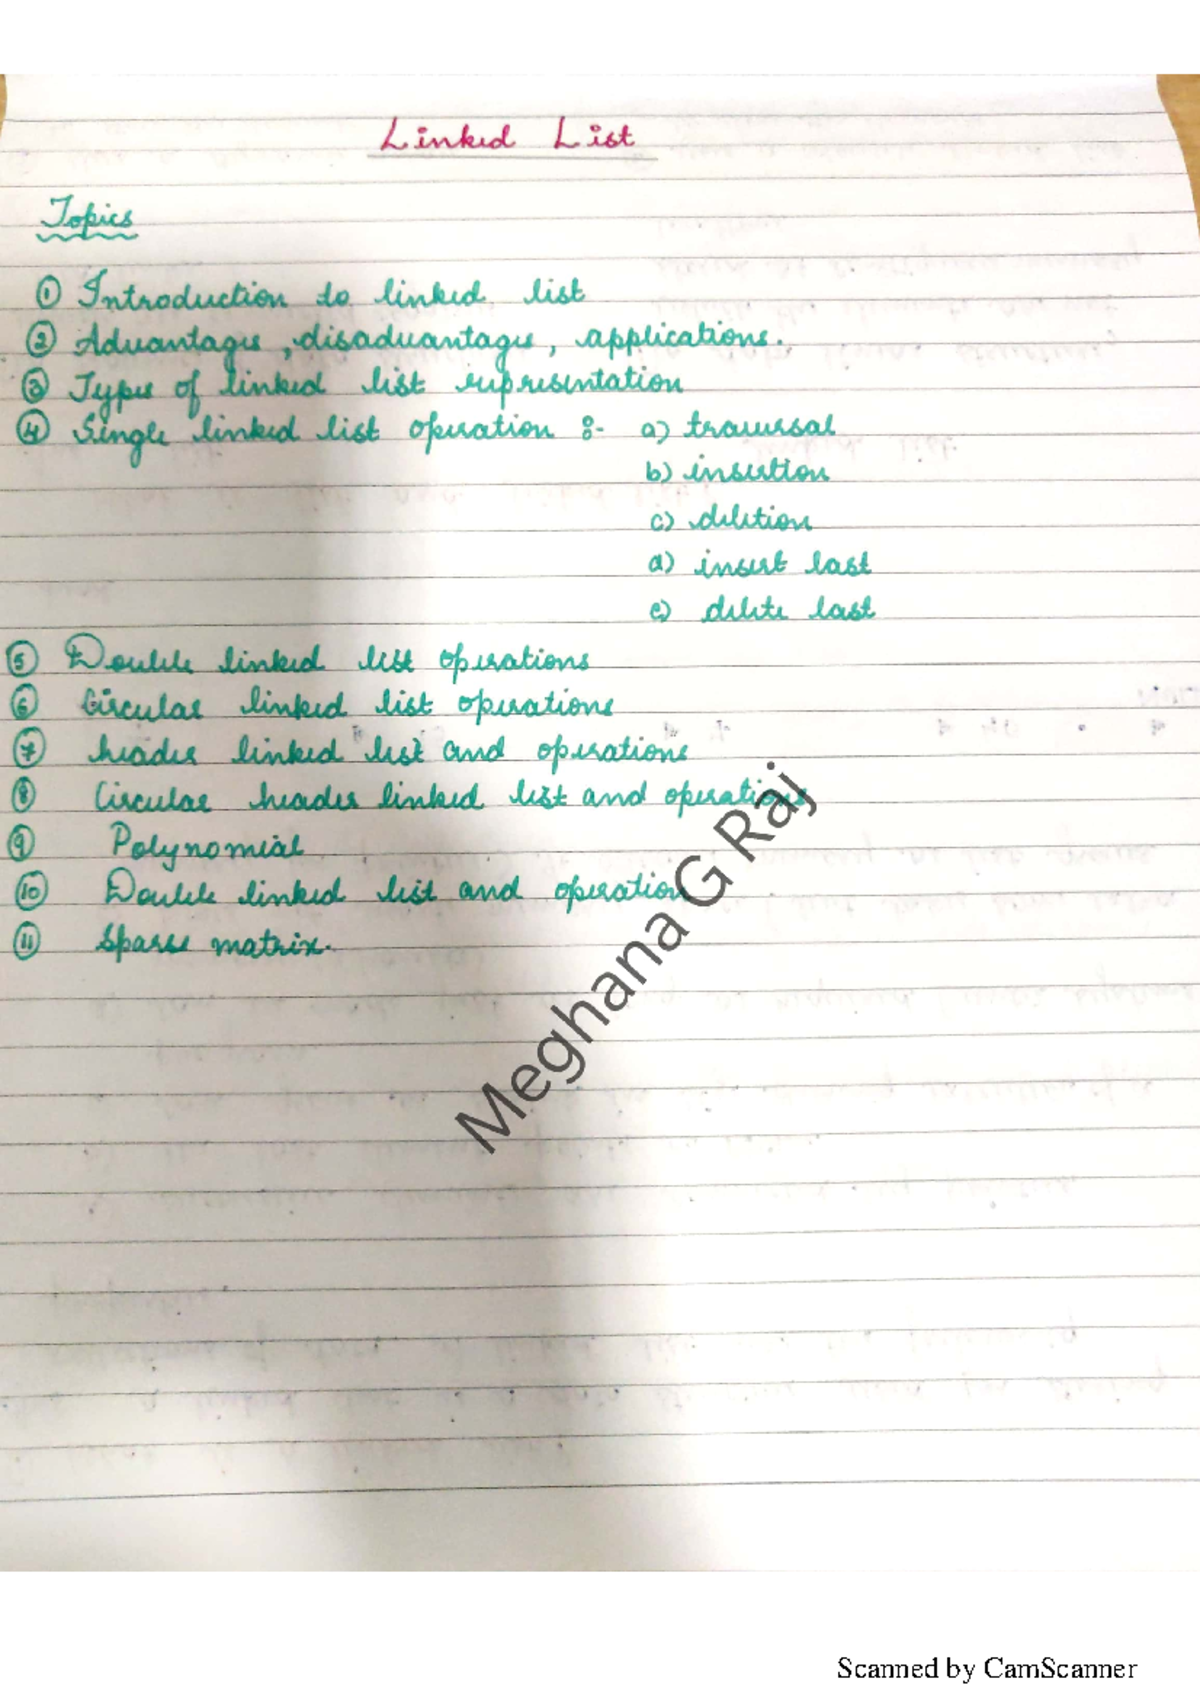 Linked List
Topics
① Introduction to linked list
② Advantages, disadvantages, applications.
③ Types of linked list representation
④ Single linked list operation :- a) traversal
b) insertion
c) deletion
d) insert last
e) delete last
⑤ Double linked list operations
⑥ Circular linked list operations
⑦ header linked list and operations
⑧ Circular header linked list and operations
⑨ Polynomial
⑩ Double linked list and operation
⑪ Sparse matrix.
Meghana G Raj
Scanned by CamScanner